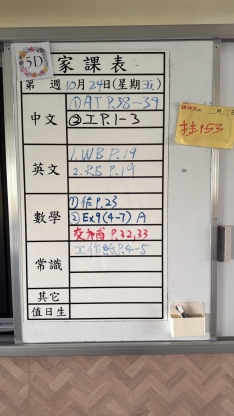 5D
家課表
第 週 10月24日(星期五)
中文
①AT P.38-39
②工P.1-3
英文
1. WB P.19
2. RS P.19
數學
①作P.23
②Ex9(4-7) A
P.32,33
常識
工作紙P.4-5
其它
值日生
P.53